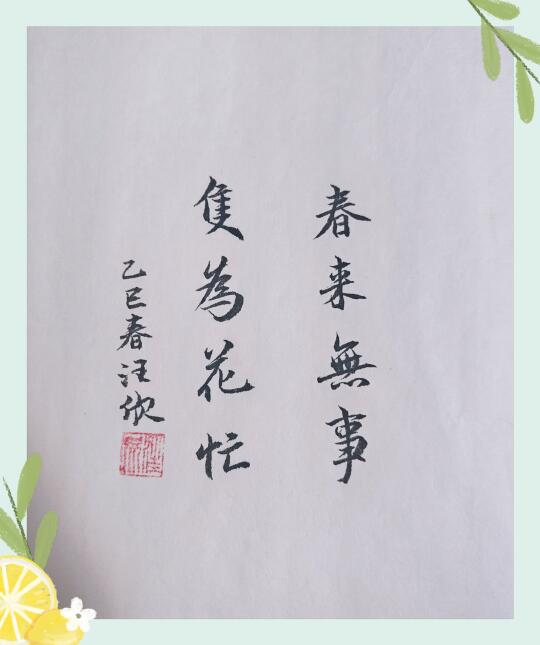 春来無事
隻為花忙
乙巳春汪欣